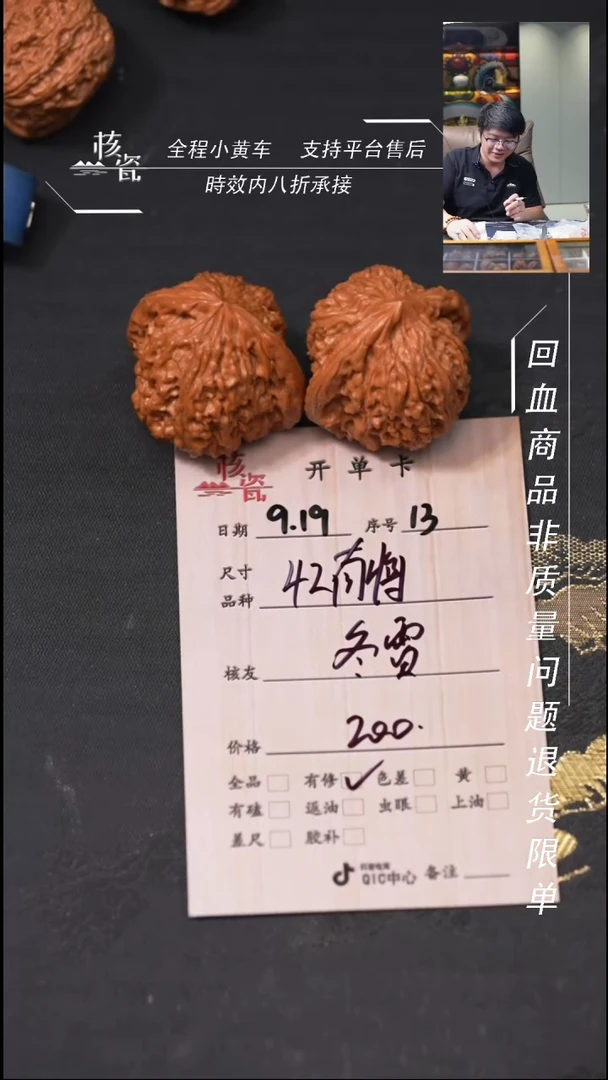 核瓷
全程小黄车 支持平台售后
時效内八折承接
回血商品非质量问题退货限单
核瓷
开单卡
日期 9.19 序号 13
尺寸
品种 42南将
核友 冬雷
价格 200.
全品 有修 ✓ 色差 黄
有磕 返油 虫眼 上油
差尺 胶补
QIC中心 备注